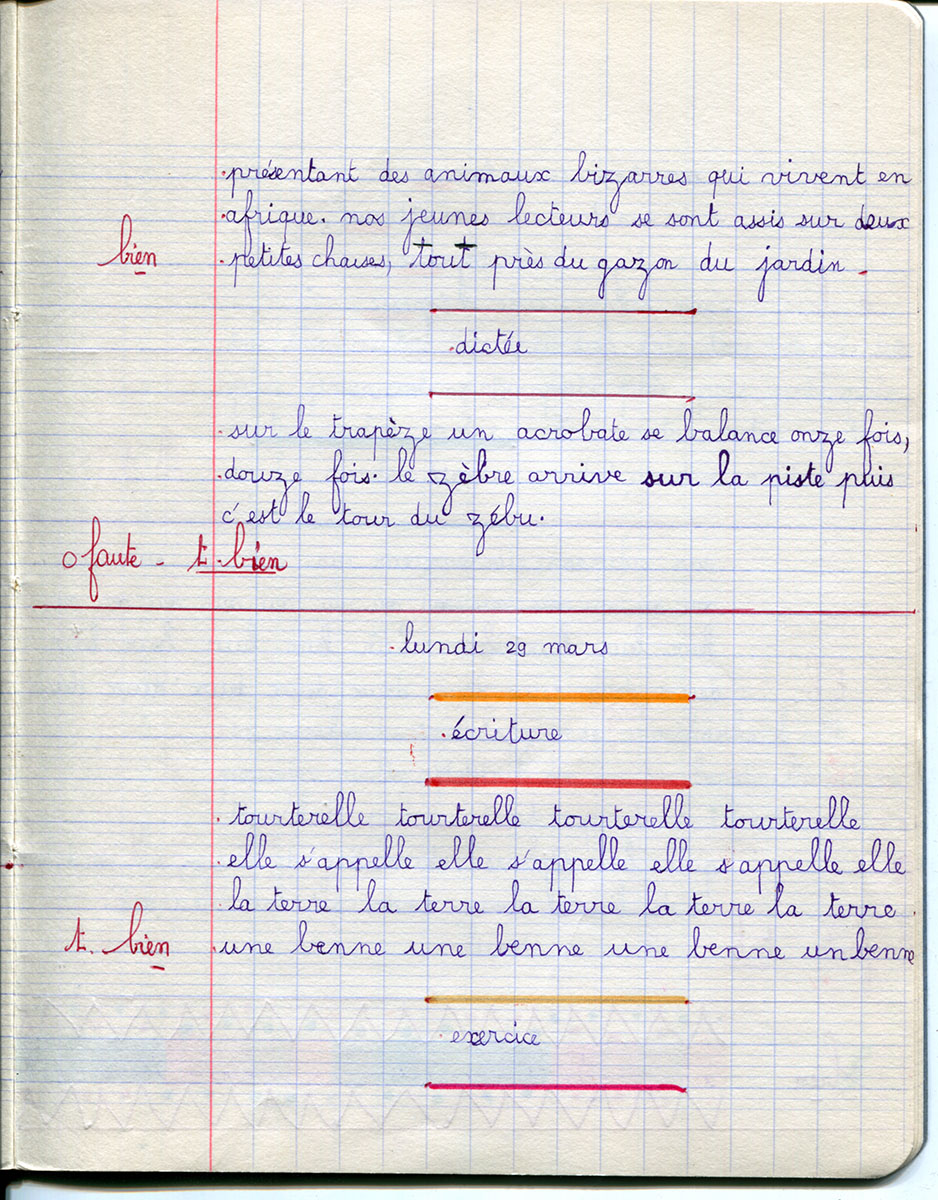 présentant des animaux bizarres qui vivent en
afrique. nos jeunes lecteurs se sont assis sur deux
bien petites chaises, tout près du gazon du jardin.
dictée
sur le trapèze un acrobate se balance onze fois,
douze fois. le zèbre arrive sur la piste puis
c'est le tour du zébu.
0 faute - t. bien
lundi 29 mars
écriture
tourterelle tourterelle tourterelle tourterelle
elle s'appelle elle s'appelle elle s'appelle elle
la terre la terre la terre la terre la terre.
t. bien une benne une benne une benne un benne
exercice